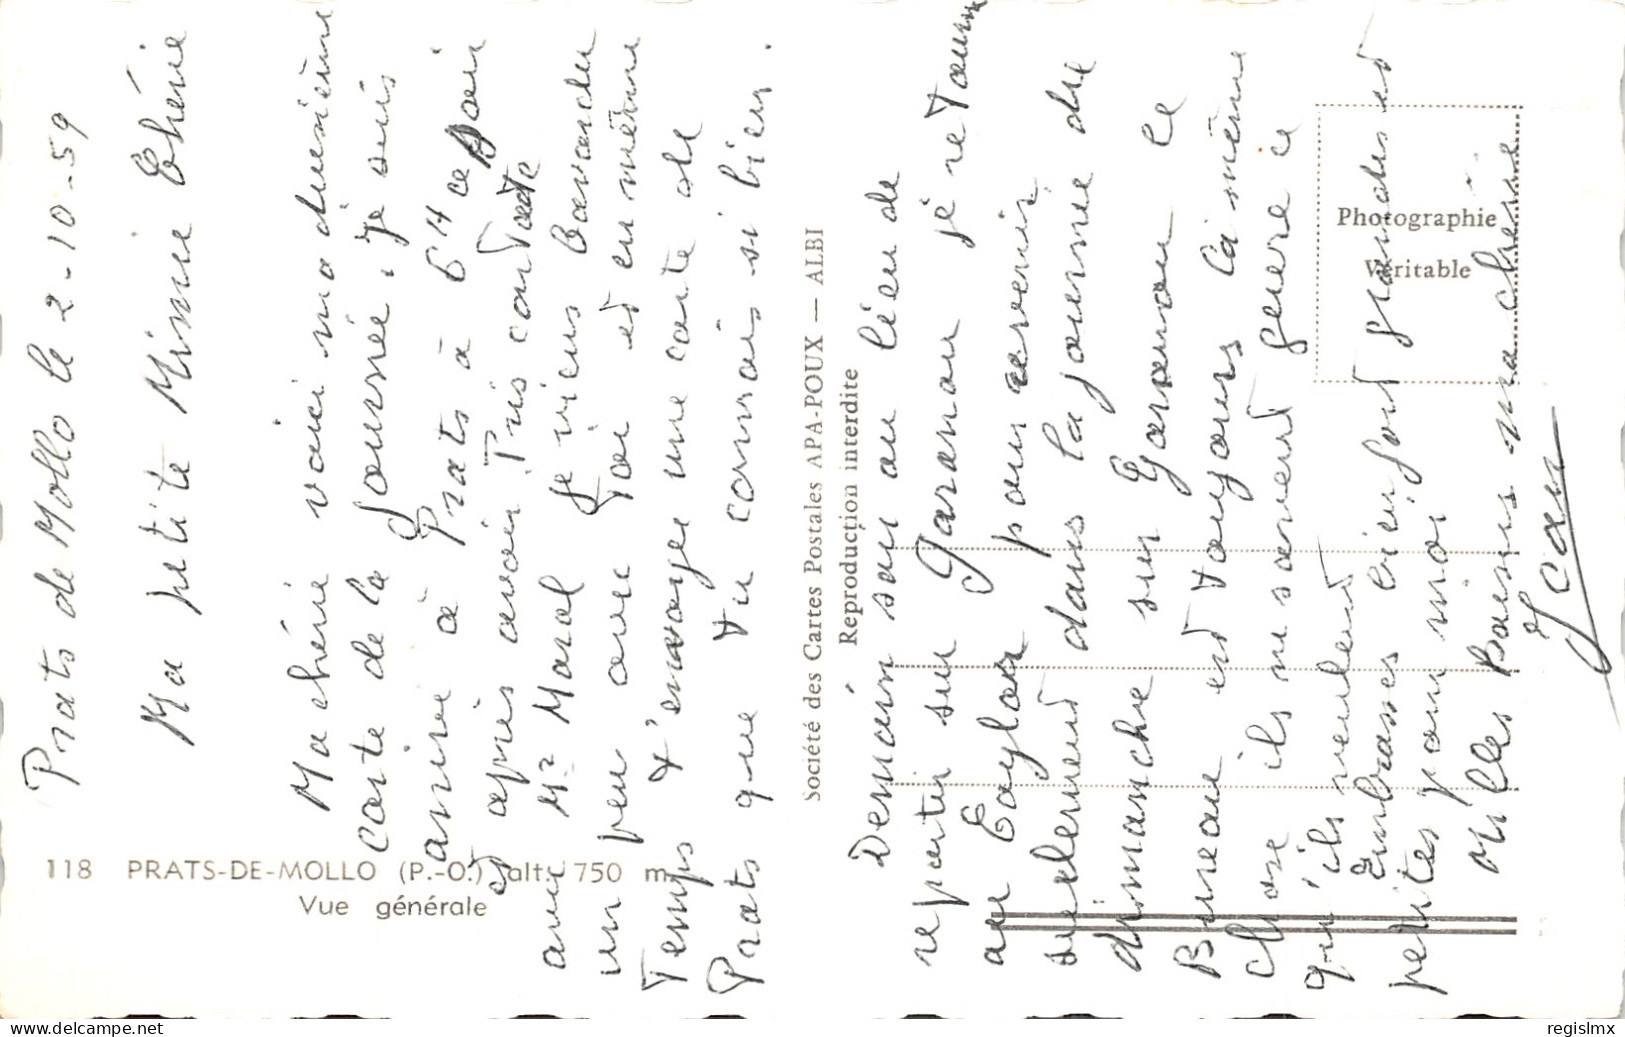 Prats de Mollo le 2-10-59
Ma petite Mimie Chérie
Ma chérie voici ma deuxième
carte de la journée, je suis
arrivé à Prats à 6H ce soir
et après avoir
avec Mr Maral je viens
un peu avec toi et en même
Temps t'envoyer une carte de
Prats que tu connais si bien.
118 PRATS-DE-MOLLO (P.-O.) alt. 750 m.
Vue générale
Société des Cartes Postales APA-POUX — ALBI
Reproduction interdite
Demain soir au lieu de
repartir sur je retourne
au pour revenir
seulement dans la journée du
dimanche sur le
Bureau est toujours la même
chose ils ne savent guere ce
qu'ils veulent
Embrasses bien fort grandes et
petites pour moi
Milles Baisers ma cherie
Jean
Photographie
Véritable
regislmx